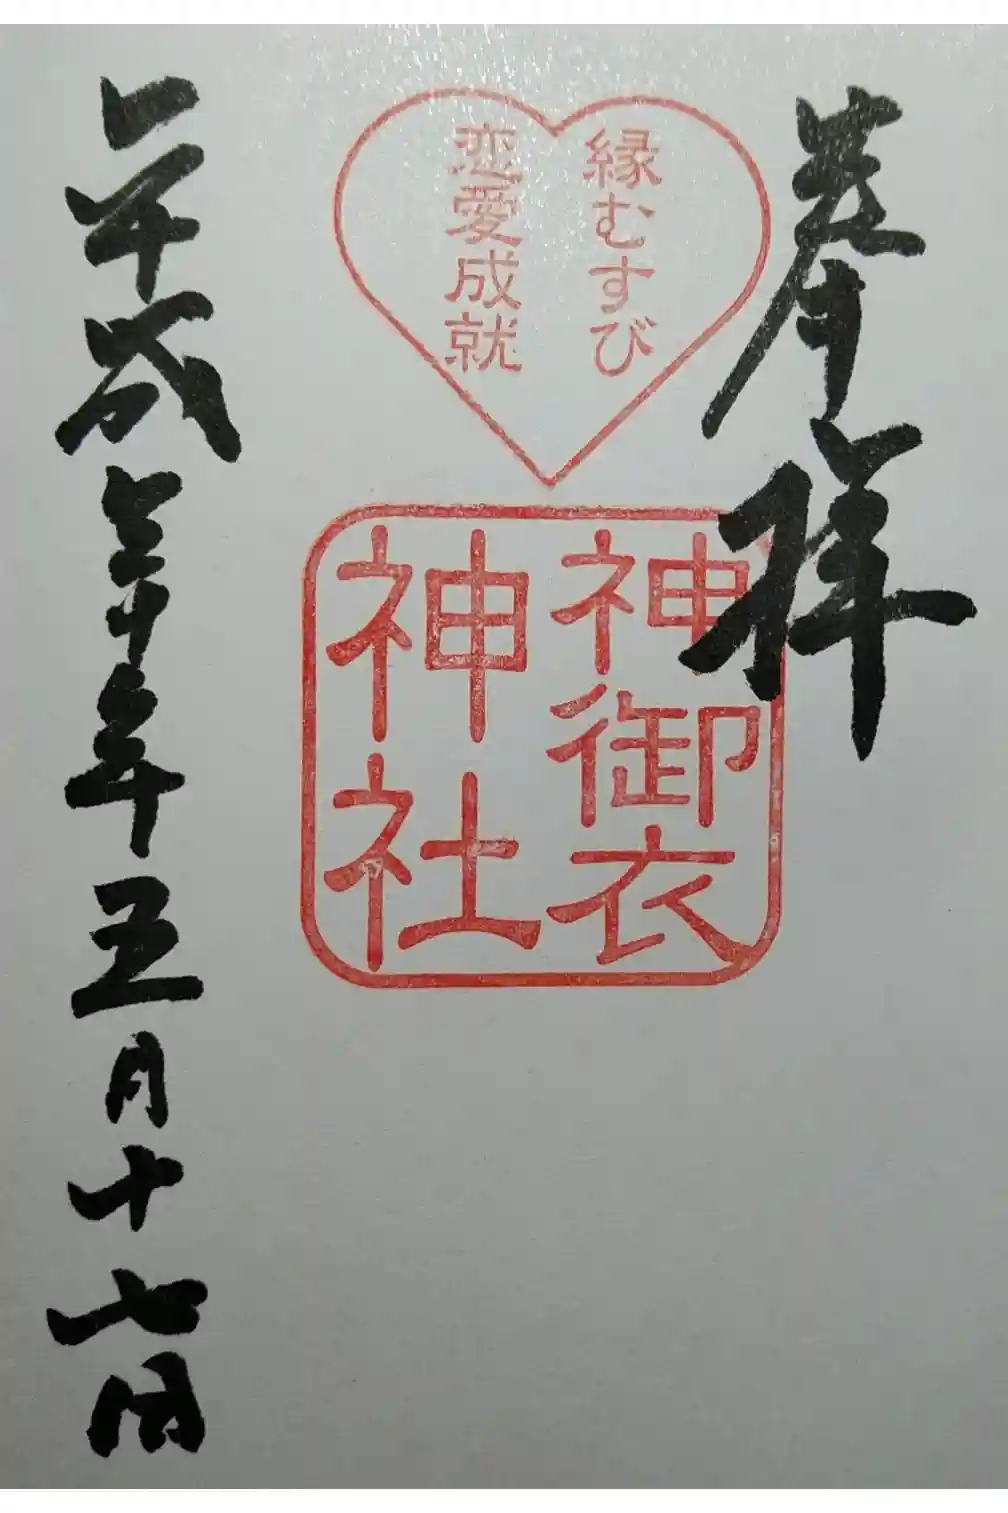 奉拝
縁むすび
恋愛成就
神御衣
神社
平成三十年五月十七日